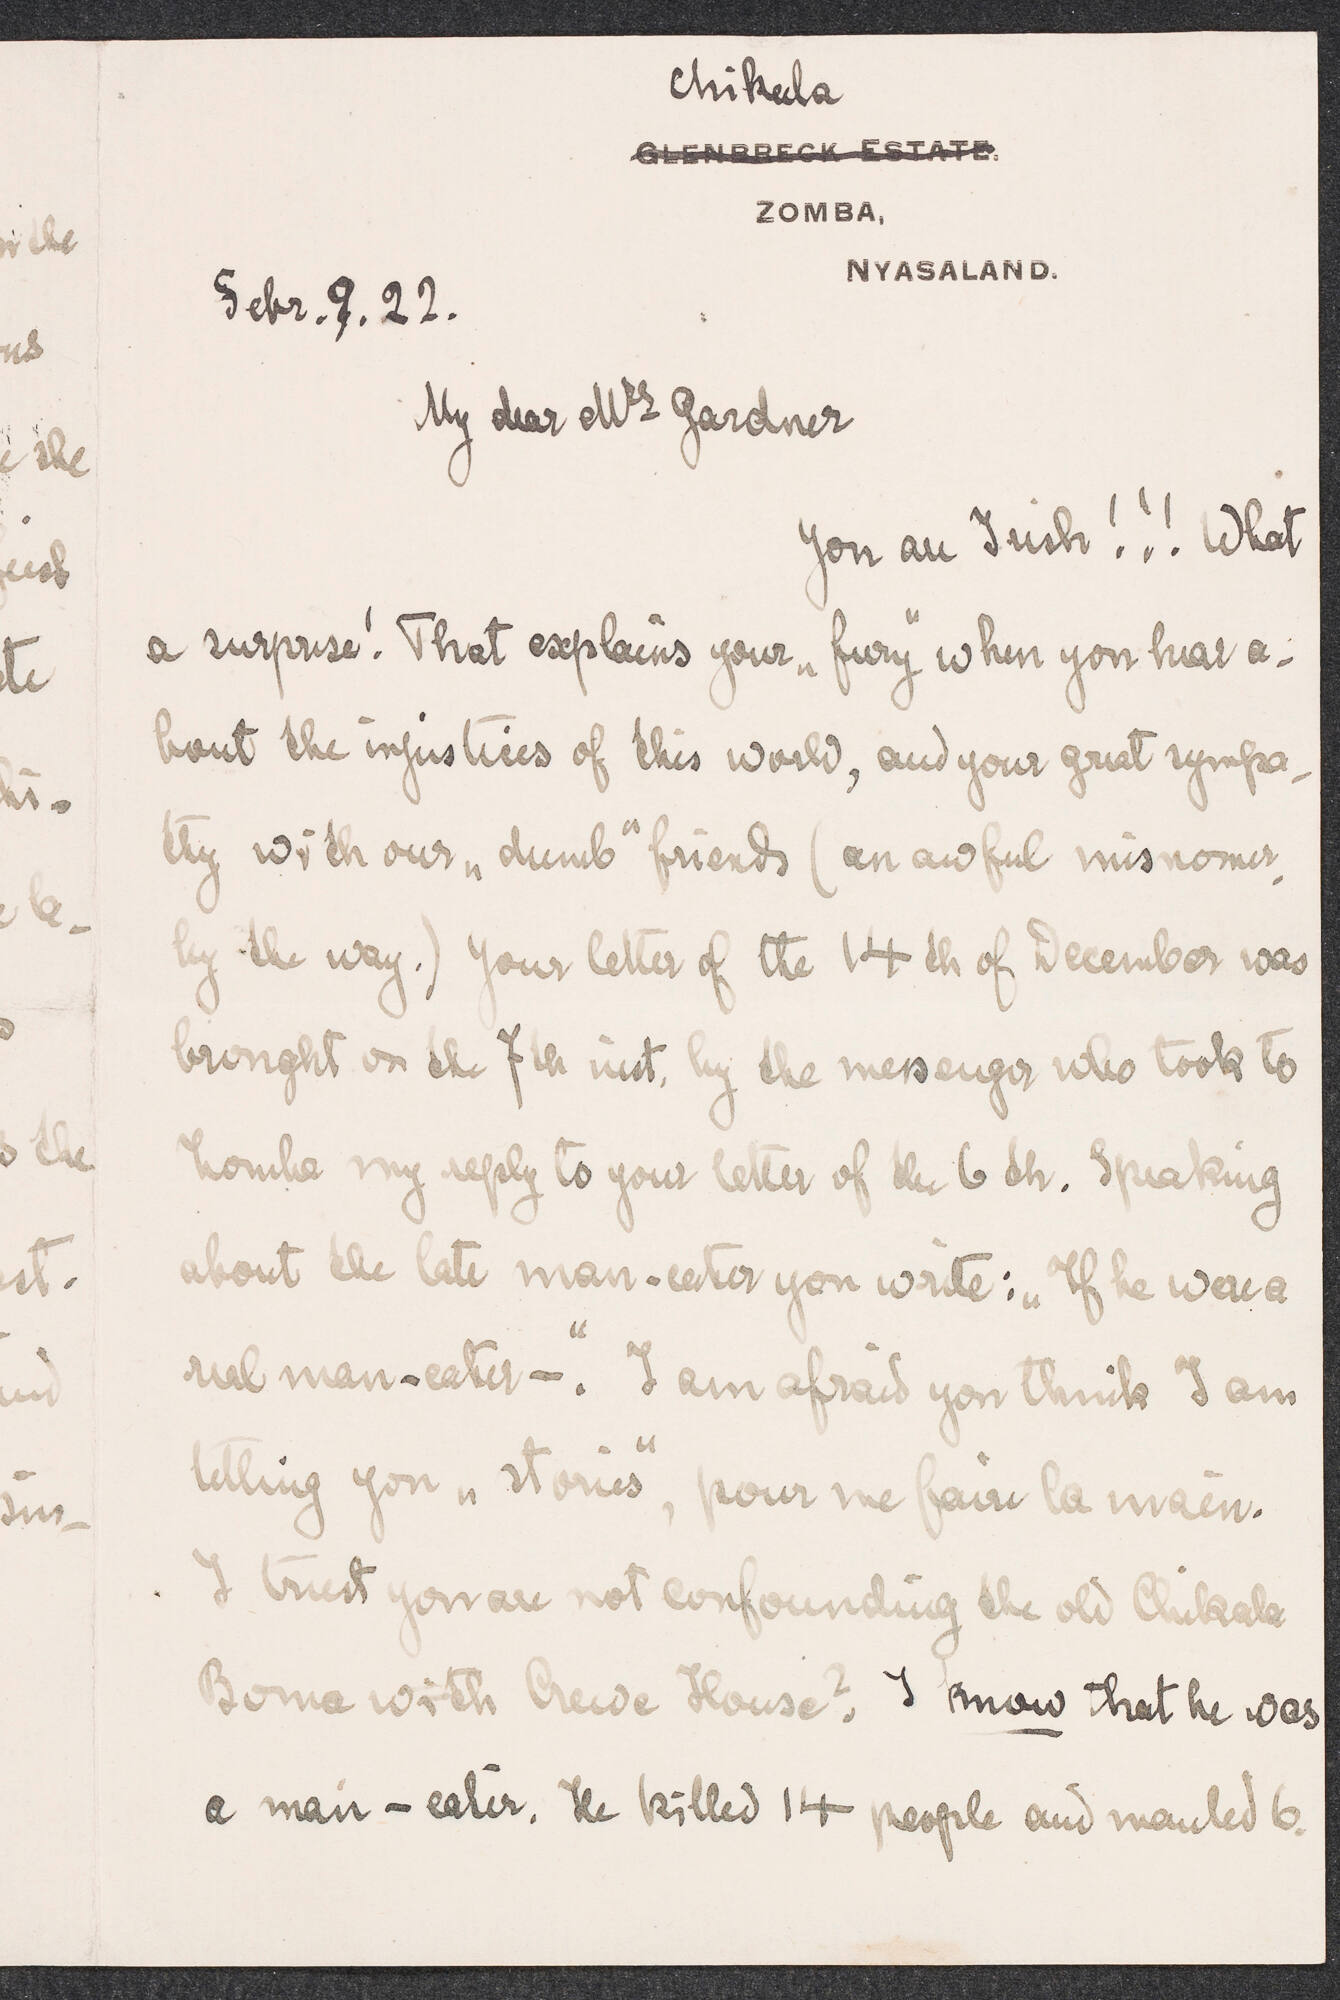 Chikala
GLENBRECK ESTATE.
ZOMBA,
NYASALAND.
Febr. 9. 22.
My dear Mrs Gardner
You are Irish!!! What
a surprise! That explains your „fury“ when you hear a-
bout the injustices of this world, and your great sympa-
thy with our „dumb“ friends (an awful misnomer,
by the way.) Your letter of the 14th of December was
brought on the 7th inst. by the messenger who took to
Zomba my reply to your letter of the 6th. Speaking
about the late man-eater you write: „If he were a
real man-eater—“. I am afraid you think I am
telling you „stories“, pour me faire la main.
I trust you are not confounding the old Chikala
Boma with Crewe House?. I know that he was
a man-eater. He killed 14 people and mauled 6.
n the
ous
e the
te
hi-
e be-
s the
est.
and
sin-